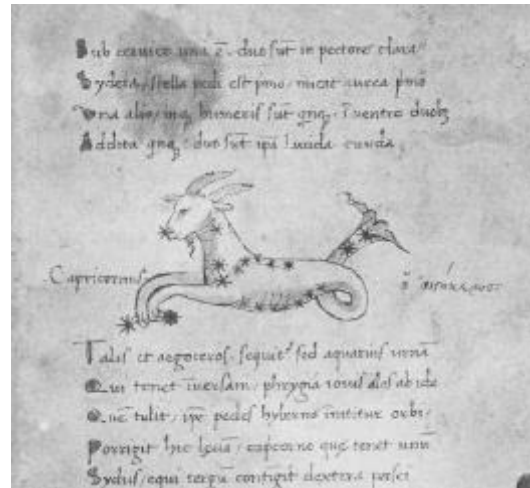 Sub ceruice una ē. duo sūt in pectore clara
Sydera, stella pedi est p̄mo, micat una
Una aluo, inq; humeris sūt qnq; ī ventre duob;
Addita qnq; duo sūt lucida cauda
Capricornus
Talis et aegoceros. sequit' sed aquarius urnā
Qui tenet īuersam, phrygia iouis ales ab ida
Quē tulit, pedes hyberno innititur orbi.
Porrigit hic leuā, que tenet unū
Sydus, equi contigit dextera